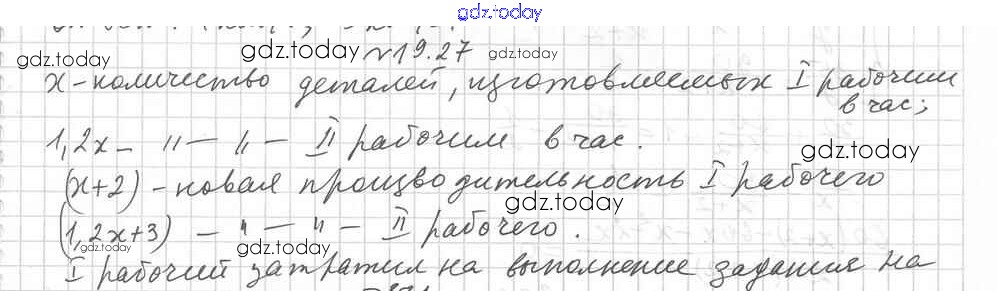 gdz.today
gdz.today №19.27 gdz.today
x - количество деталей, изготовляемых I рабочим
в час;
1,2x - " - " - II рабочим в час.
gdz.today
(x+2) - новая производительность I рабочего
gdz.today
(1,2x+3) - " - " - II рабочего.
gdz.today gdz.today
I рабочий затратил на выполнение задания на